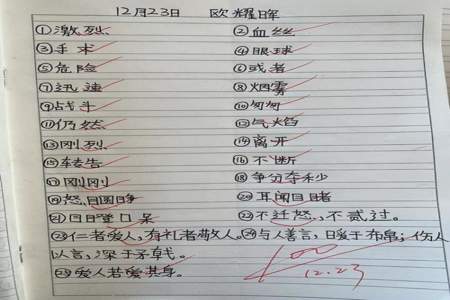 12月23日 欧耀晖
①激烈 ②血丝
③手术 ④眼球
⑤危险 ⑥或者
⑦迅速 ⑧烟雾
⑨战斗 ⑩匆匆
⑪仍然 ⑫气焰
⑬刚烈 ⑭离开
⑮转告 ⑯不断
⑰刚刚 ⑱争分夺秒
⑲怒目圆睁 ⑳耳闻目睹
㉑目瞪口呆 ㉒不迁怒,不贰过。
㉓仁者爱人,有礼者敬人。㉔与人善言,暖于布帛;伤人
以言,深于矛戟。
㉕爱人若爱其身。
100
12.23